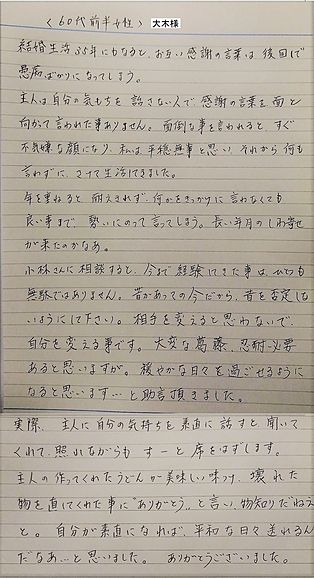 〈60代前半女性〉 大木様
結婚生活35年にもなると、お互い感謝の言葉は後回しで
愚痴ばかりになってしまう。
主人は自分の気もちを話さない人で感謝の言葉を面と
向かって言われた事ありません。面倒な事を言われると、すぐ
不気嫌な顔になり、私は平穏無事と思い、それから何も
言わずに、さけて生活してきました。
年を重ねると耐えきれず、何かをきっかけに言わなくても
良い事まで、勢いにのって言ってしまう。長い年月のしわ寄せ
が来たのかなあ。
小林さんに相談すると、今まで経験してきた事は、ひとつも
無駄ではありません。昔があっての今だから、昔を否定しな
いようにして下さい。相手を変えると思わないで、
自分を変える事です。大変な葛藤、忍耐必要
あると思いますが。穏やかな日々を過ごせるように
なると思います…と助言頂きました。
実際、主人に自分の気持ちを素直に話すと、聞いて
くれて、照れながらも すーと席をはずします。
主人の作ってくれたうどんが美味しい味つけ、壊れた
物を直してくれた事に"ありがとう"と言い、物知りだねえ
と。自分が素直になれば、平和な日々送れるん
だなあ…と思いました。 ありがとうございました。